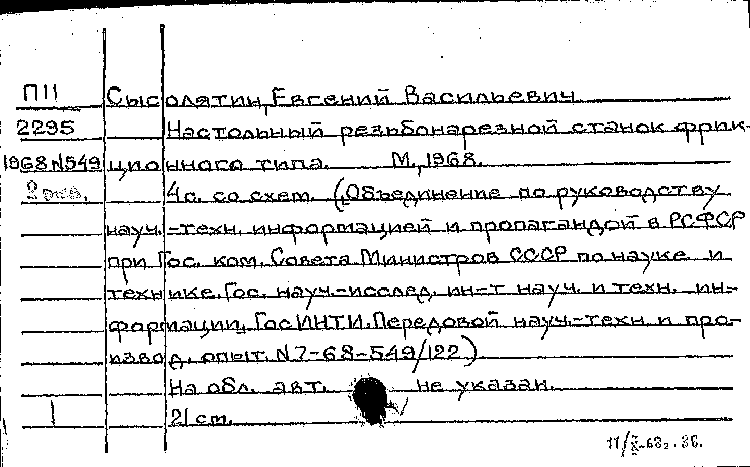 П11 Сысолятин, Евгений Васильевич
2295 Настольный резьбонарезной станок фрик-
1968 N549 ционного типа. М., 1968.
2 экз. 4с. со схем. (Объединение по руководству
науч.-техн. информацией и пропагандой в РСФСР
при Гос. ком. Совета Министров СССР по науке и
технике. Гос. науч.-исслед. ин-т науч. и техн. ин-
формации. ГосИНТИ. Передовой науч.-техн. и про-
извод. опыт. N7-68-549/122)
На обл. авт. не указан.
1 21 см.